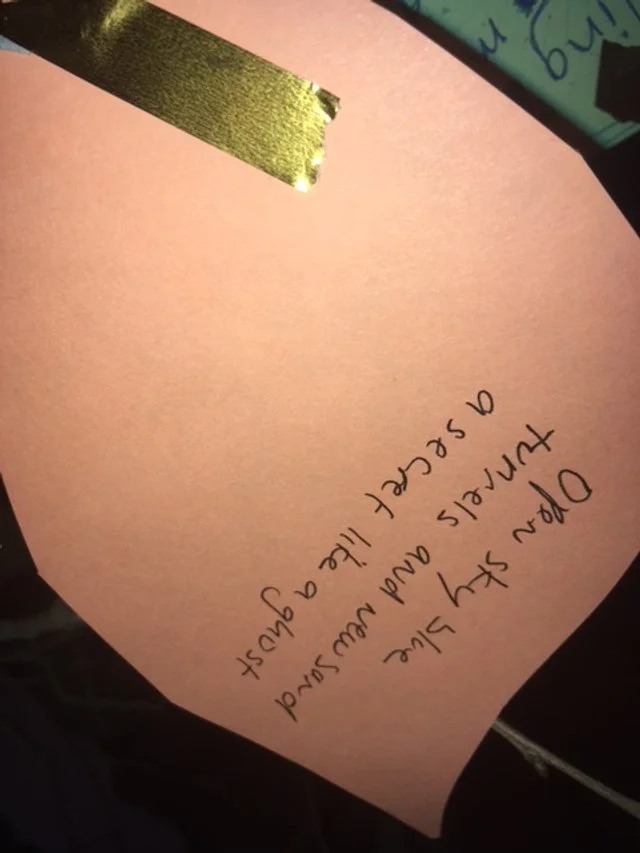 Open sky blue
tunnels and new sand
a secret like a ghost
ling